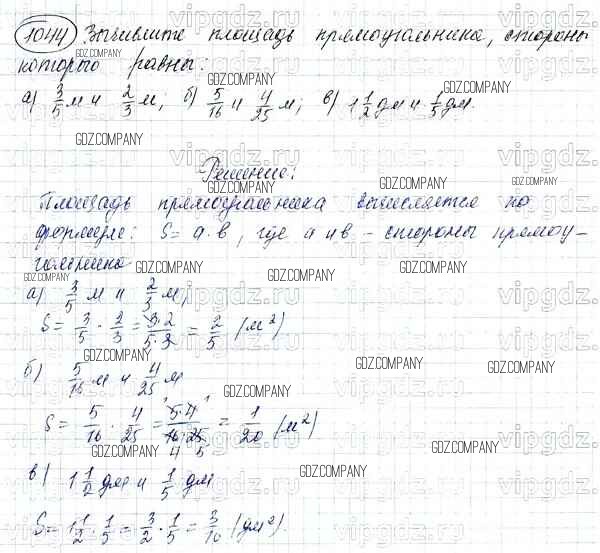 1044 Вычислите площадь прямоугольника, стороны
которого равны:
а) 3/5 м и 2/3 м; б) 5/16 и 4/25 м; в) 1 1/2 дм и 1/5 дм.
Решение:
Площадь прямоугольника вычисляется по
формуле: S = a·в, где a и в – стороны прямоу-
гольника
а) 3/5 м и 2/3 м;
S = 3/5 · 2/3 = 3·2/5·3 = 2/5 (м²)
б) 5/16 м и 4/25 м
S = 5/16 · 4/25 = 5·4/16·25 = 1/20 (м²)
4 5
в) 1 1/2 дм и 1/5 дм
S = 1 1/2 · 1/5 = 3/2 · 1/5 = 3/10 (дм²).
GDZ.COMPANY
vipgdz.ru